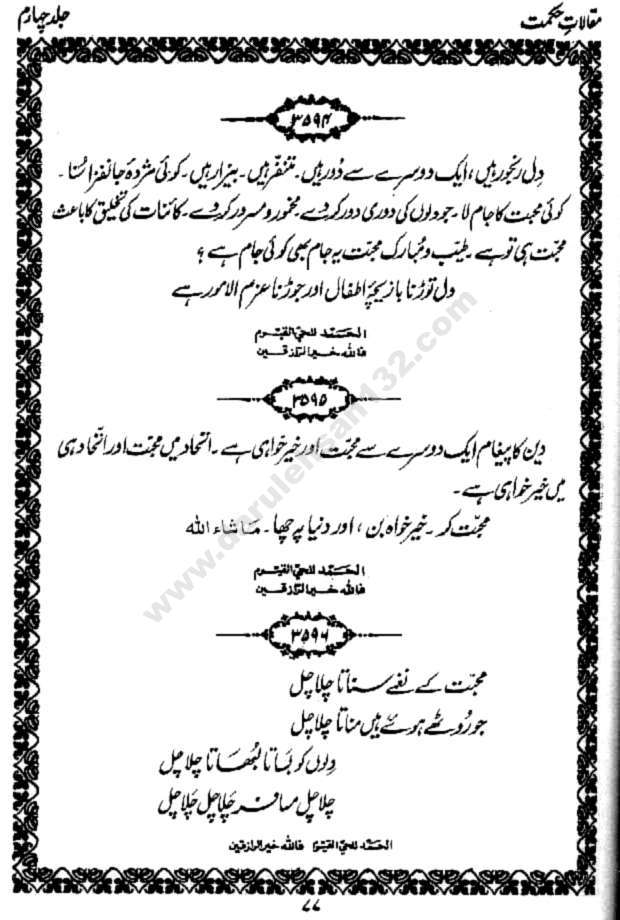 مقالاتِ حکمت
جلد چہارم
۳۵۹۴
دِل رنجور ہیں، ایک دوسرے سے دُور ہیں۔ متنفّر ہیں۔ بیزار ہیں۔ کوئی مژدۂ جانفزا سُنا۔
کوئی محبت کا جام لا۔ جو دِلوں کی دوری دور کر دے۔ مخمور و مسرور کر دے۔ کائنات کی تخلیق کا باعث
محبّت ہی تو ہے۔ طیّب و مُبارک محبّت یہ جام بھی کوئی جام ہے؟
دِل توڑنا بازیچۂ اطفال اور جوڑنا عزم الامور ہے
الحمد للحی القیوم
فاللہ خیر الرازقین
۳۵۹۵
دین کا پیغام ایک دوسرے سے محبّت اور خیر خواہی ہے۔ اتحاد میں محبّت اور اتّحاد ہی
میں خیر خواہی ہے۔
محبّت کر۔ خیر خواہ بن، اور دنیا پہ چھا۔ ماشاء اللہ
الحمد للحی القیوم
فاللہ خیر الرازقین
۳۵۹۶
محبّت کے نغمے سناتا چلا چل
جو رُوٹھے ہوئے ہیں مناتا چلا چل
دِلوں کو بَساتا لُبھاتا چلا چل
چلا چل مسافر چلا چل چلا چل
الحمد للحی القیوم فاللہ خیر الرازقین
۷۷
www.darulehsan132.com